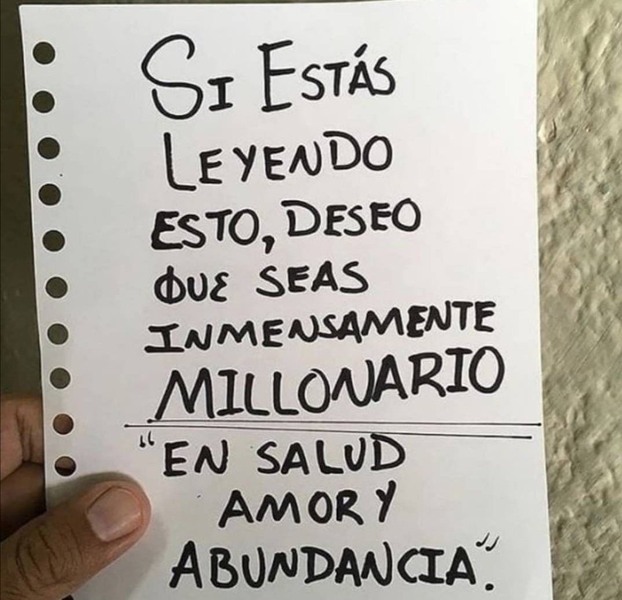 SI ESTÁS
LEYENDO
ESTO, DESEO
QUE SEAS
INMENSAMENTE
MILLONARIO
"EN SALUD
AMOR Y
ABUNDANCIA".